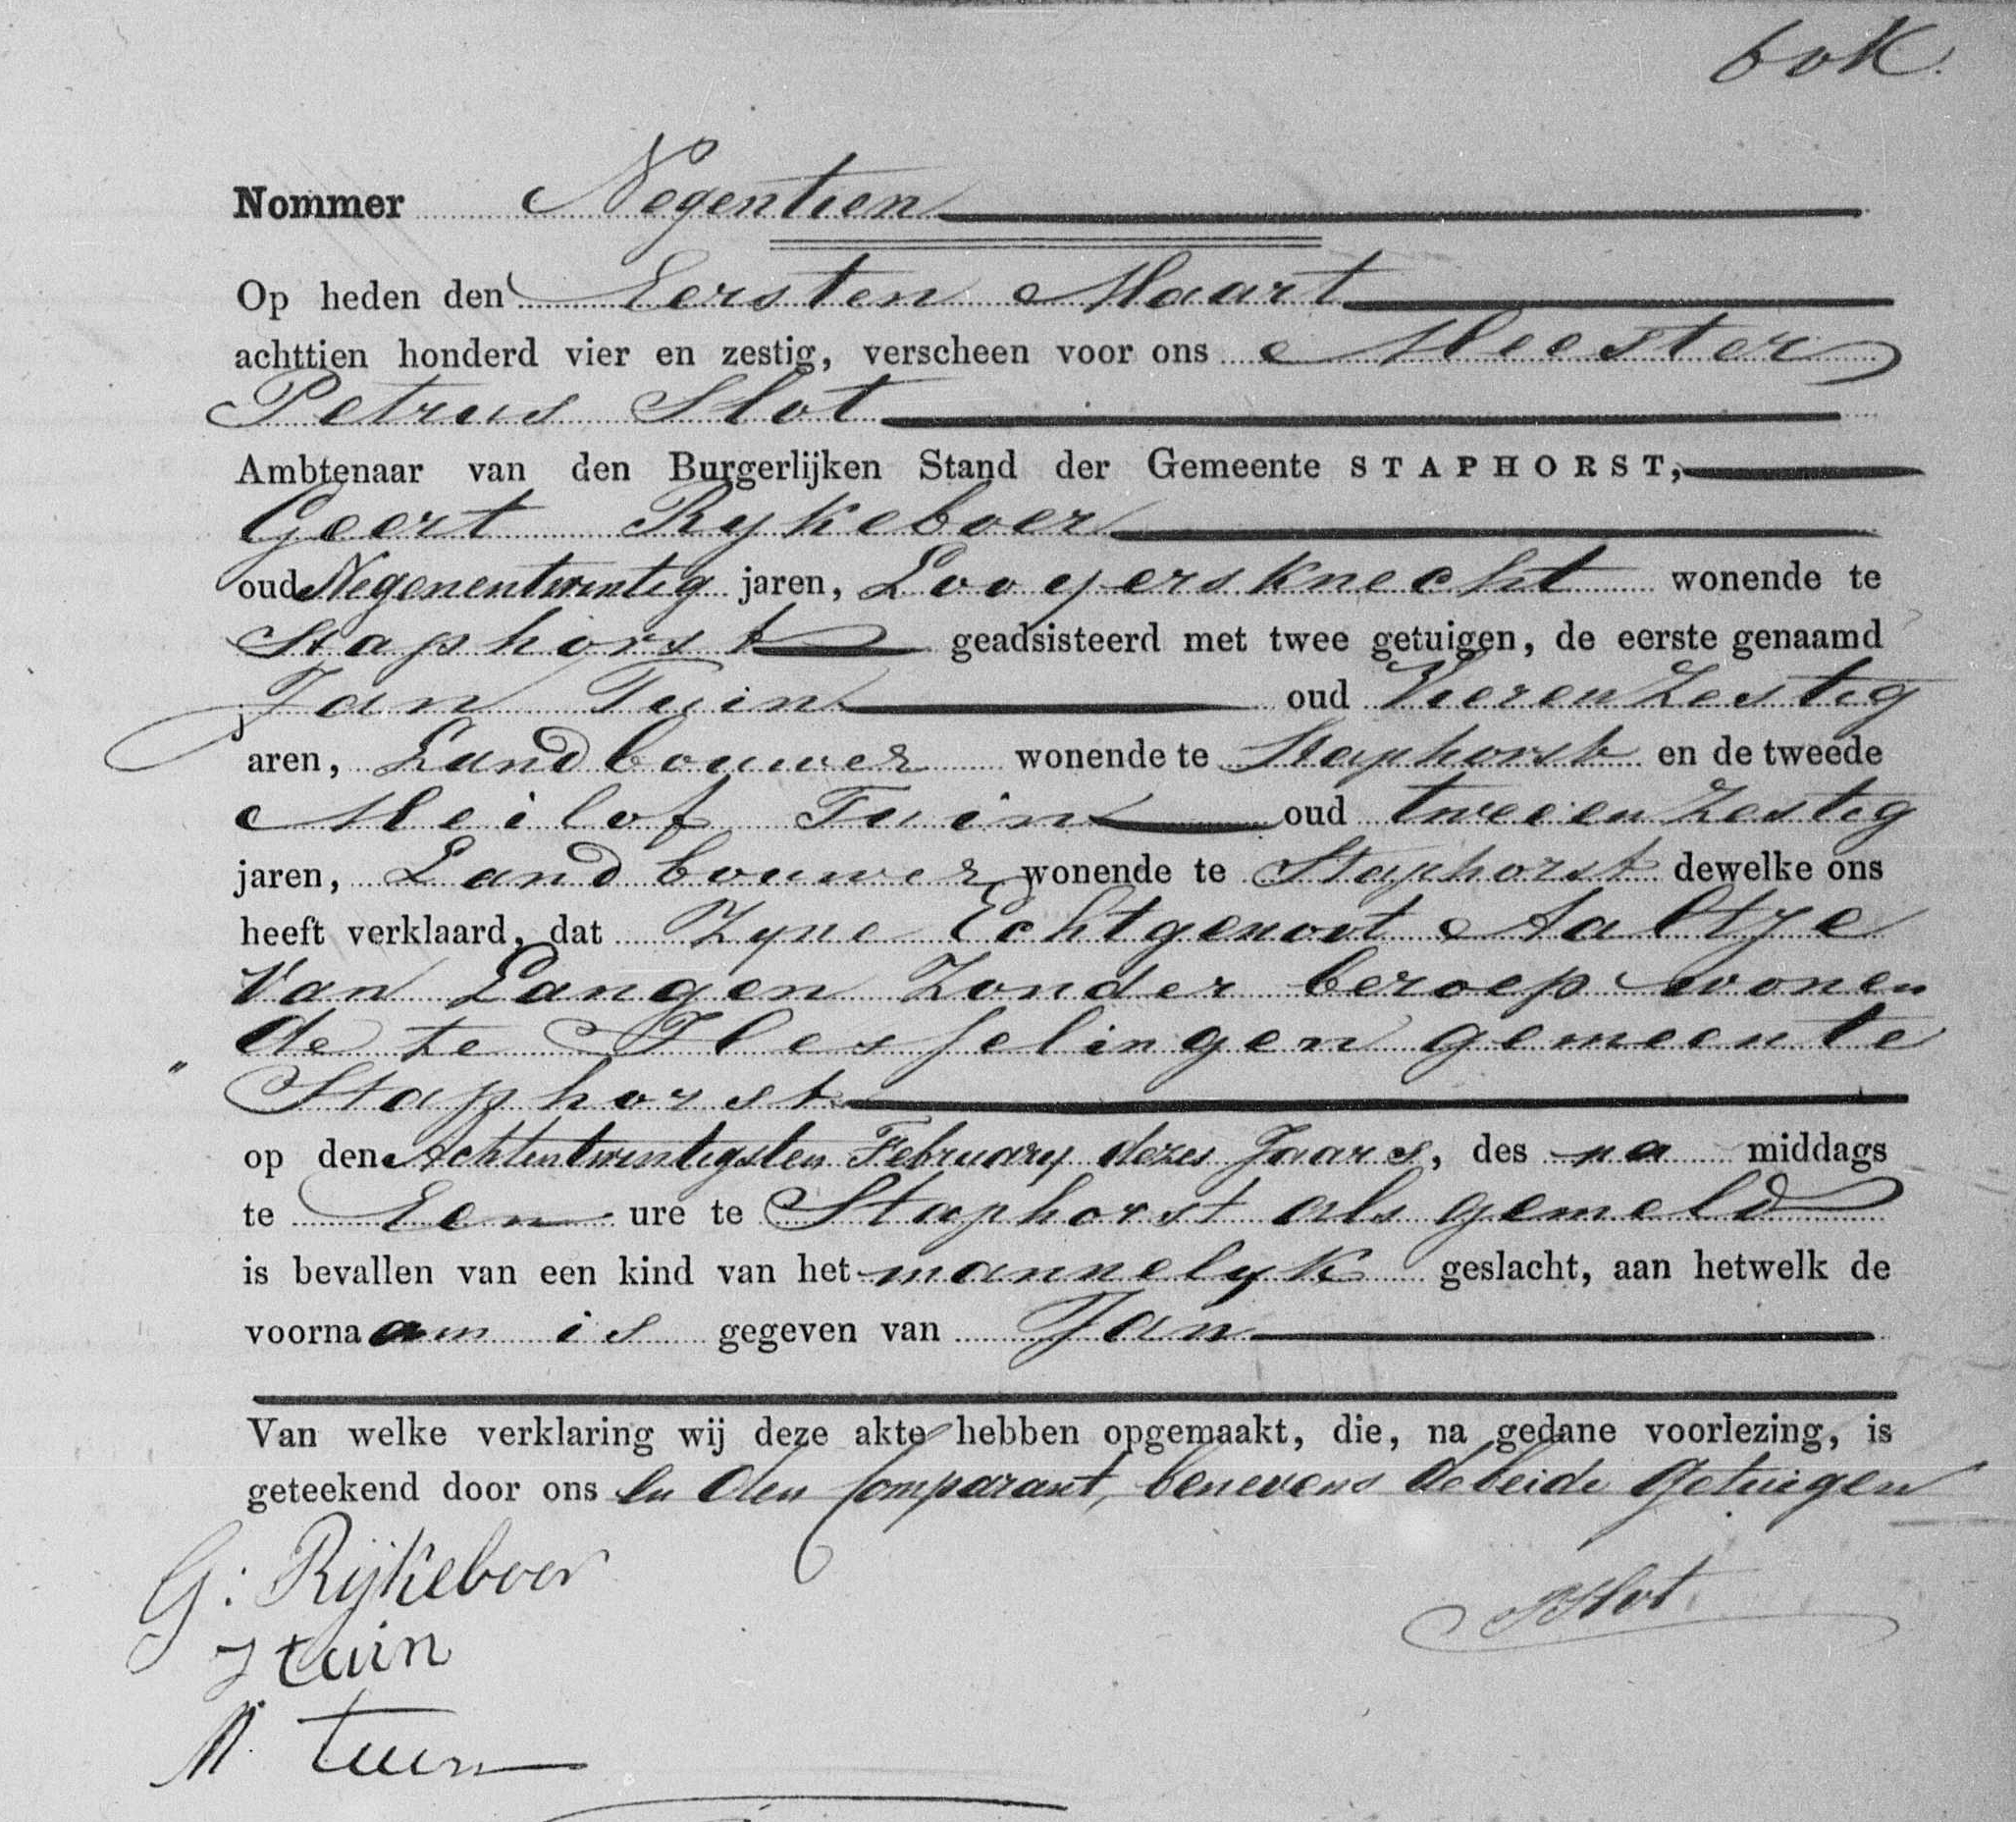 bok.
Nommer Negentien
Op heden den Eersten Maart
achttien honderd vier en zestig, verscheen voor ons Meester
Petrus Slot
Ambtenaar van den Burgerlijken Stand der Gemeente STAPHORST,
Geert Rykeboer
oud Negenentwintig jaren, Looyersknecht wonende te
Staphorst geadsisteerd met twee getuigen, de eerste genaamd
Jan Tuin oud Vierenzestig
jaren, Landbouwer wonende te Staphorst en de tweede
Meilof Tuin oud tweeenzestig
jaren, Landbouwer wonende te Staphorst dewelke ons
heeft verklaard, dat Zyne Echtgenoot Aaltje
Van Langen Zonder beroep wonen
de te IJhesselingen gemeente
„ Staphorst
op den Achtentwintigsten February dezes Jaars, des na middags
te Een ure te Staphorst als gemeld
is bevallen van een kind van het mannelyk geslacht, aan hetwelk de
voornaam is gegeven van Jan
Van welke verklaring wij deze akte hebben opgemaakt, die, na gedane voorlezing, is
geteekend door ons en den Comparant, benevens de beide Getuigen
G: Rijkeboer
PSlot
J tuin
M. tuin